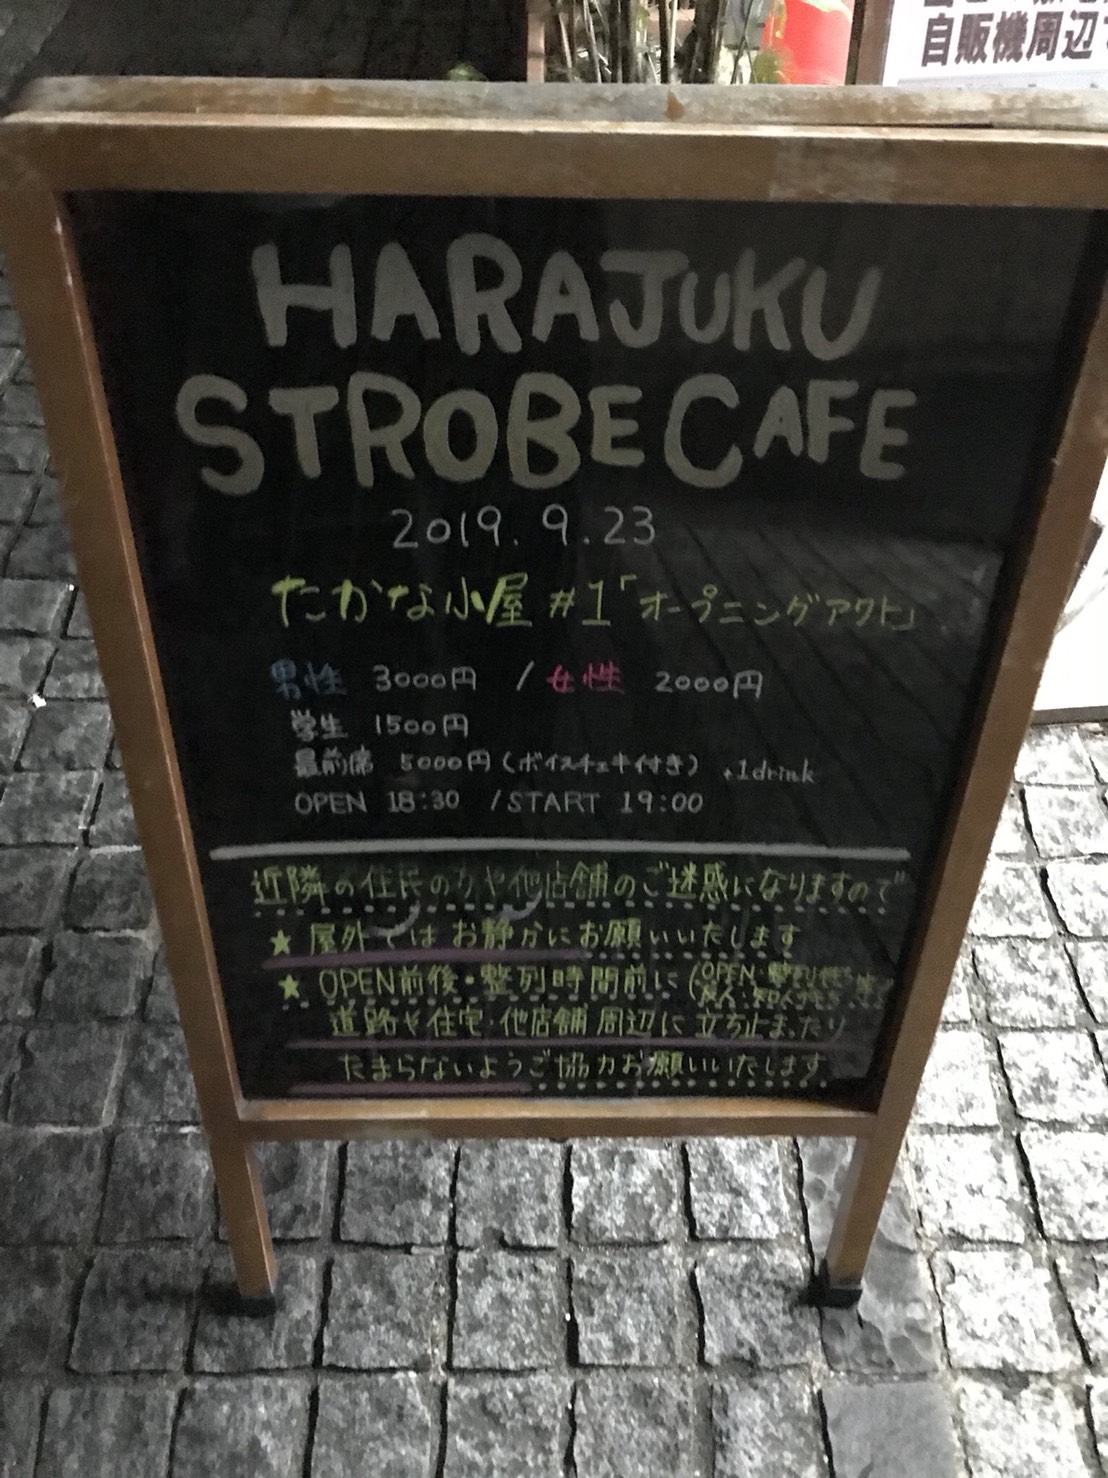 自販機周辺
HARAJUKU
STROBE CAFE
2019. 9. 23
たかな小屋 #1「オープニングアクト」
男性 3000円 / 女性 2000円
学生 1500円
最前席 5000円(ボイスチェキ付き) +1drink
OPEN 18:30 /START 19:00
近隣の住民の方や他店舗のご迷惑になりますので
★ 屋外ではお静かにお願いいたします
★ OPEN前後・整列時間前に(OPEN・整列
道路や住宅・他店舗周辺に立ち止まったり
たまらないようご協力お願いいたします